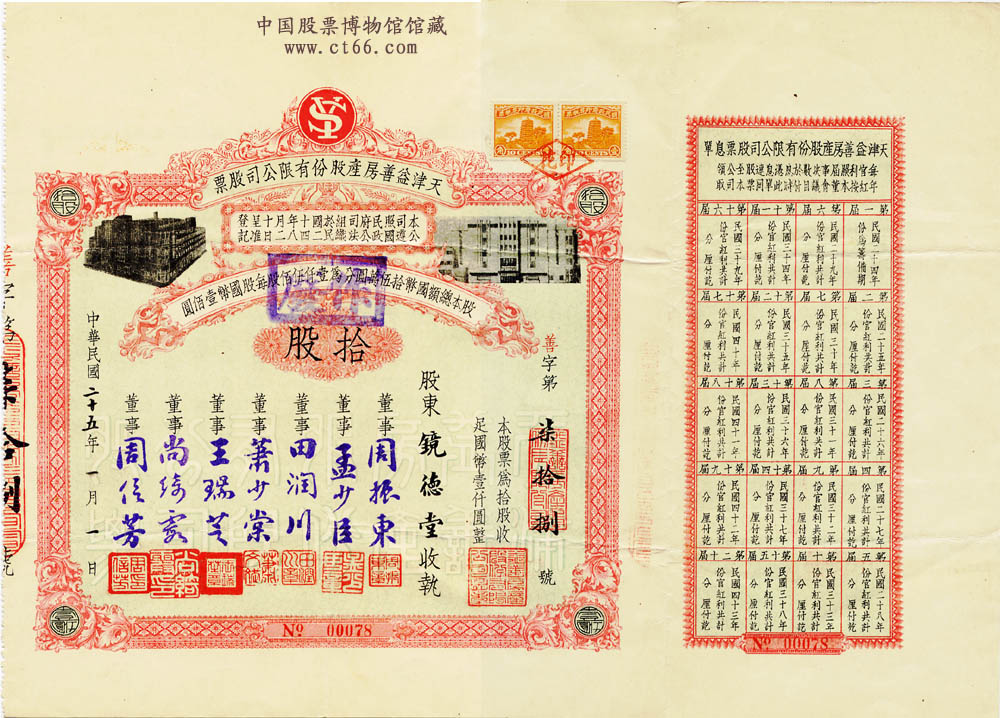 中国股票博物馆馆藏
www.ct66.com
YS
天津益善房產股份有限公司股票
本公司遵照國民政府公司法組織於民國二十四年十月八日呈准登記
股本總額國幣拾伍萬圓分為壹仟伍佰股每股國幣壹佰圓
拾股
善字第柒拾捌號
本股票為拾股收足國幣壹仟圓整
股東鏡德堂收執
董事周振東
董事孟少臣
董事田潤川
董事蕭少棠
董事王瑞芝
董事尚綺霞
董事周信芳
中華民國二十五年一月一日
No 00078
天津益善房產股份有限公司股票息單
第一屆
民國二十四年份為籌備期
第二屆
民國二十五年份官紅利共計 分 厘付訖
第三屆
民國二十六年份官紅利共計 分 厘付訖
第四屆
民國二十七年份官紅利共計 分 厘付訖
第五屆
民國二十八年份官紅利共計 分 厘付訖
第六屆
民國二十九年份官紅利共計 分 厘付訖
第七屆
民國三十年份官紅利共計 分 厘付訖
第八屆
民國三十一年份官紅利共計 分 厘付訖
第九屆
民國三十二年份官紅利共計 分 厘付訖
第十屆
民國三十三年份官紅利共計 分 厘付訖
第十一屆
民國三十四年份官紅利共計 分 厘付訖
第十二屆
民國三十五年份官紅利共計 分 厘付訖
第十三屆
民國三十六年份官紅利共計 分 厘付訖
第十四屆
民國三十七年份官紅利共計 分 厘付訖
第十五屆
民國三十八年份官紅利共計 分 厘付訖
第十六屆
民國三十九年份官紅利共計 分 厘付訖
第十七屆
民國四十年份官紅利共計 分 厘付訖
第十八屆
民國四十一年份官紅利共計 分 厘付訖
第十九屆
民國四十二年份官紅利共計 分 厘付訖
第二十屆
民國四十三年份官紅利共計 分 厘付訖
No 00078